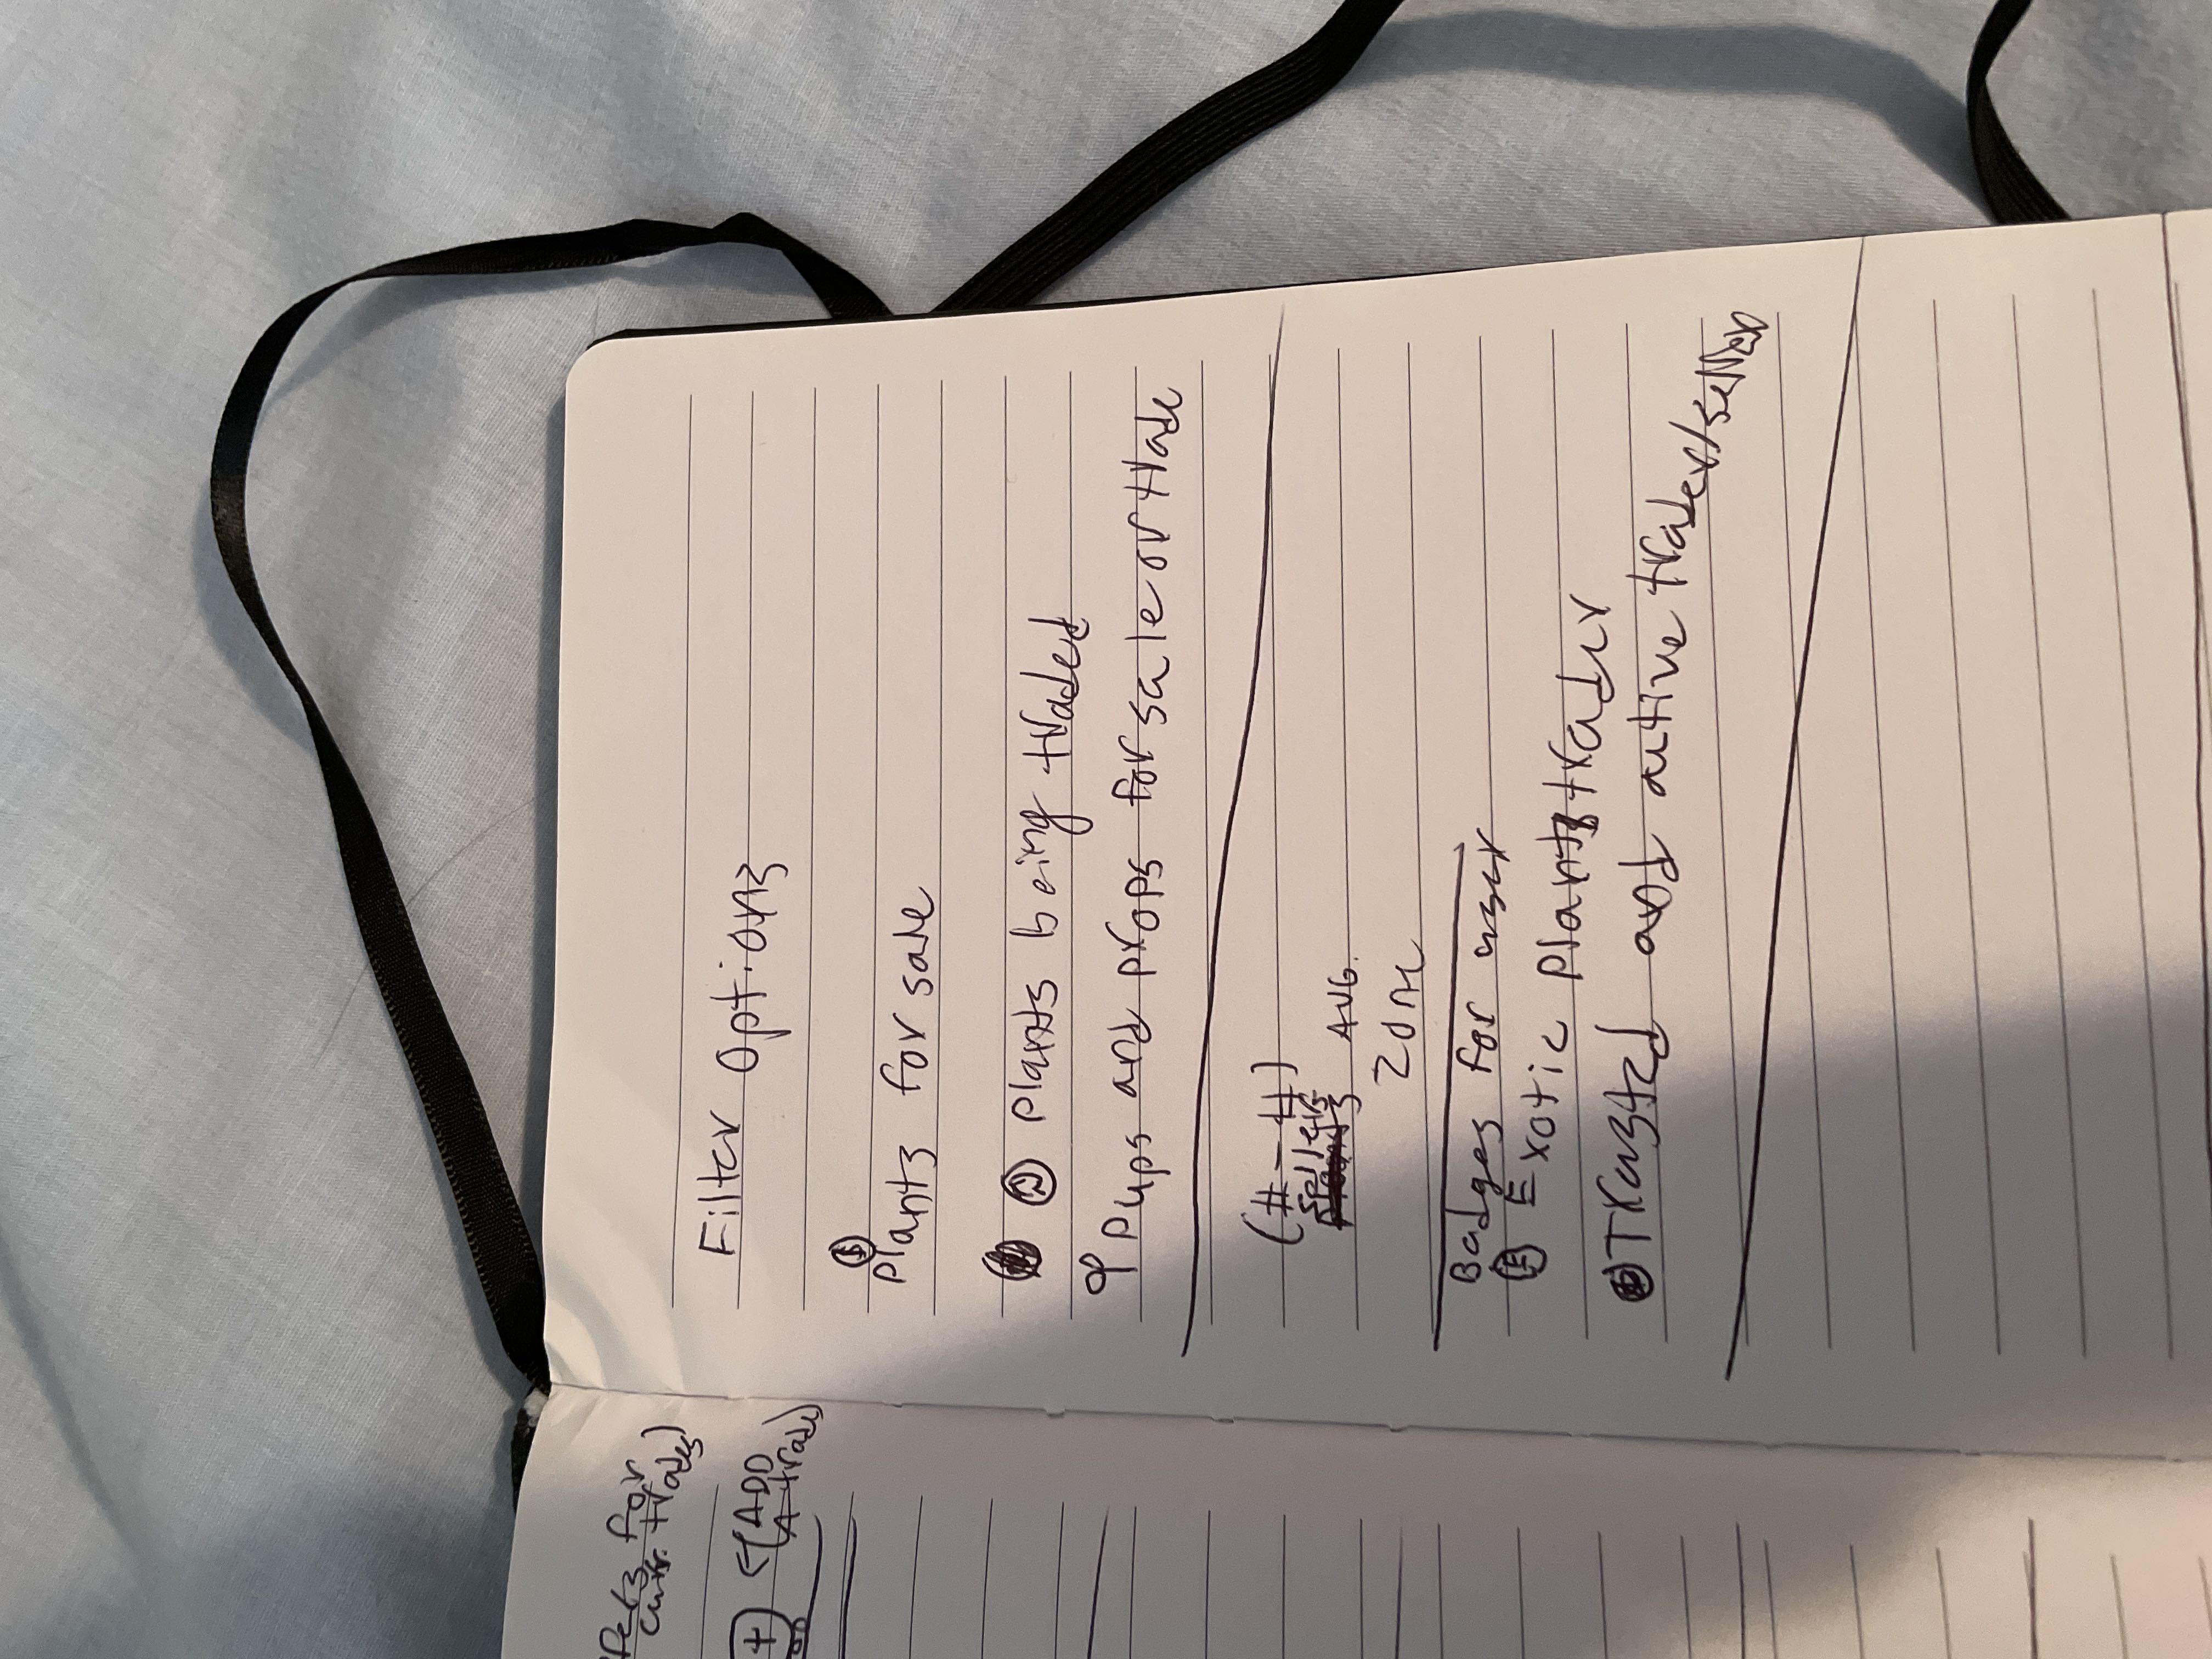 Filter Options
($)
Plants for sale
(2) Plants being traded
Pups and props for sale or trade
(#-#)
sellers AVG.
zone
Badges for user
(E) Exotic plant trader
Trusted and active trader/seller
for
curr. trades)
+ (ADD
A trade)